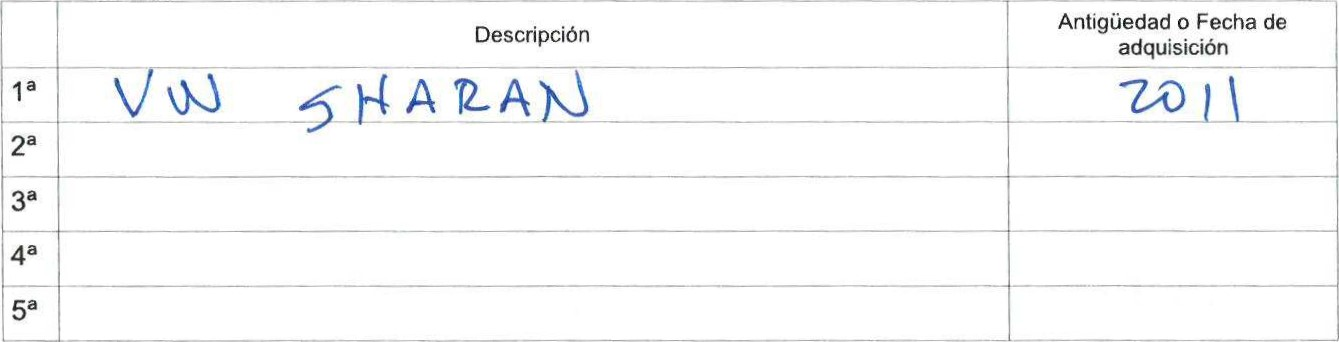 Descripción
Antigüedad o Fecha de
adquisición
1ª VW SHARAN 2011
2ª
3ª
4ª
5ª